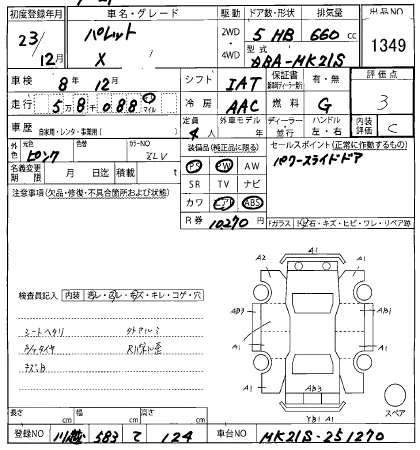 初度登録年月 車名・グレード 駆動 ドア数・形状 排気量 出品NO
23/12月 パレット X 2WD 4WD 5 HB 660 cc 1349
型式 DBA-MK21S
車検 8年 12月 シフト IAT 保証書 有・無 評価点
走行 5万8千088 マイル 冷房 AAC 燃料 G 3
車歴 自家用・レンタ・事業用( ) 定員 4人 外車モデル ディーラー 並行 ハンドル 左・右 内装評価 C
外色 元色 ピンク 色替 カラーNO ZLV
装備品(純正品に限る) セールスポイント(正常に作動するもの)
名義変更期限 月 日迄 積載 t
PS PW AW パワースライドドア
SR TV ナビ
注意事項(欠品・修復・不具合箇所および状態)
カワ エアB ABS
R券 10270円 Fガラス 飛石・キズ・ヒビ・ワレ・リペア跡
A1
A2 A1
検査員記入 内装 汚レ・スレ・キズ・キレ・コゲ・穴
AB3 AB1
シートヘタリ
A1 A1
AB3
YB1 A1
スペア
長さ cm 幅 cm 高さ cm
登録NO 川越 583 て 124 車台NO MK21S-251270